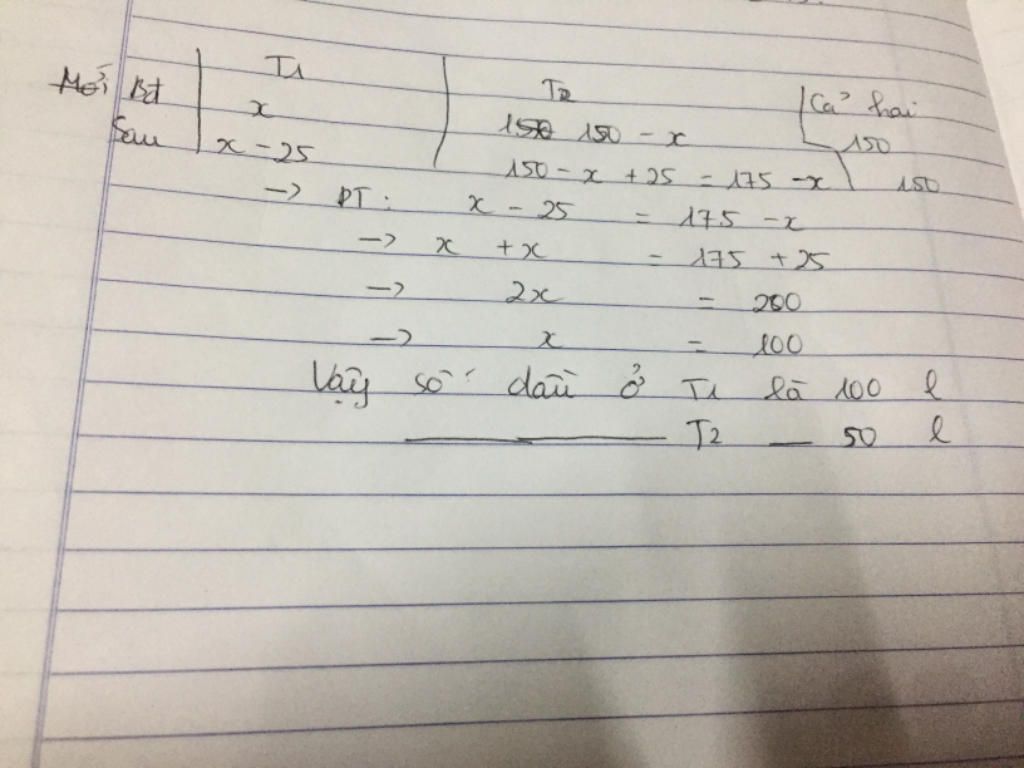 T1 T2 Cả hai
Mới Bt x 150 150 - x 150
Sau x - 25 150 - x + 25 = 175 - x 150
-> PT: x - 25 = 175 - x
-> x + x = 175 + 25
-> 2x = 200
-> x = 100
Vậy số dầu ở T1 là 100 l
T2 — 50 l